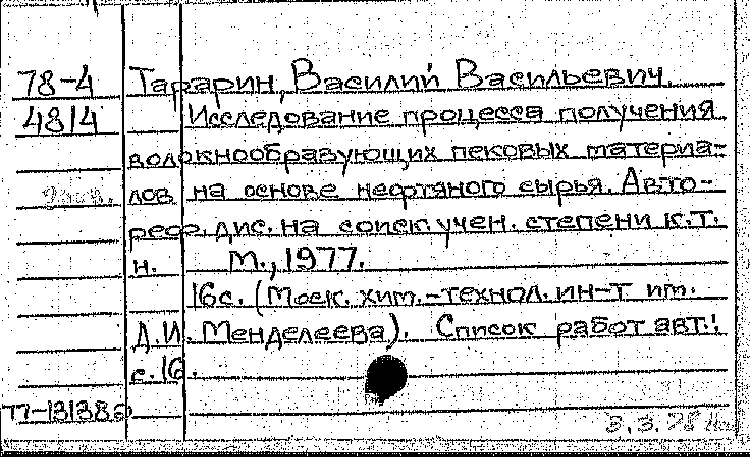 78-4 Тарарин, Василий Васильевич.
4814 Исследование процесса получения
волокнообразующих пековых материа-
лов на основе нефтяного сырья. Авто-
реф. дис. на соиск. учен. степени к.т.
н. М., 1977.
16с. (Моск. хим.-технол. ин-т им.
Д.И. Менделеева). Список работ авт.:
с. 16.
77-13138а
3.3.78